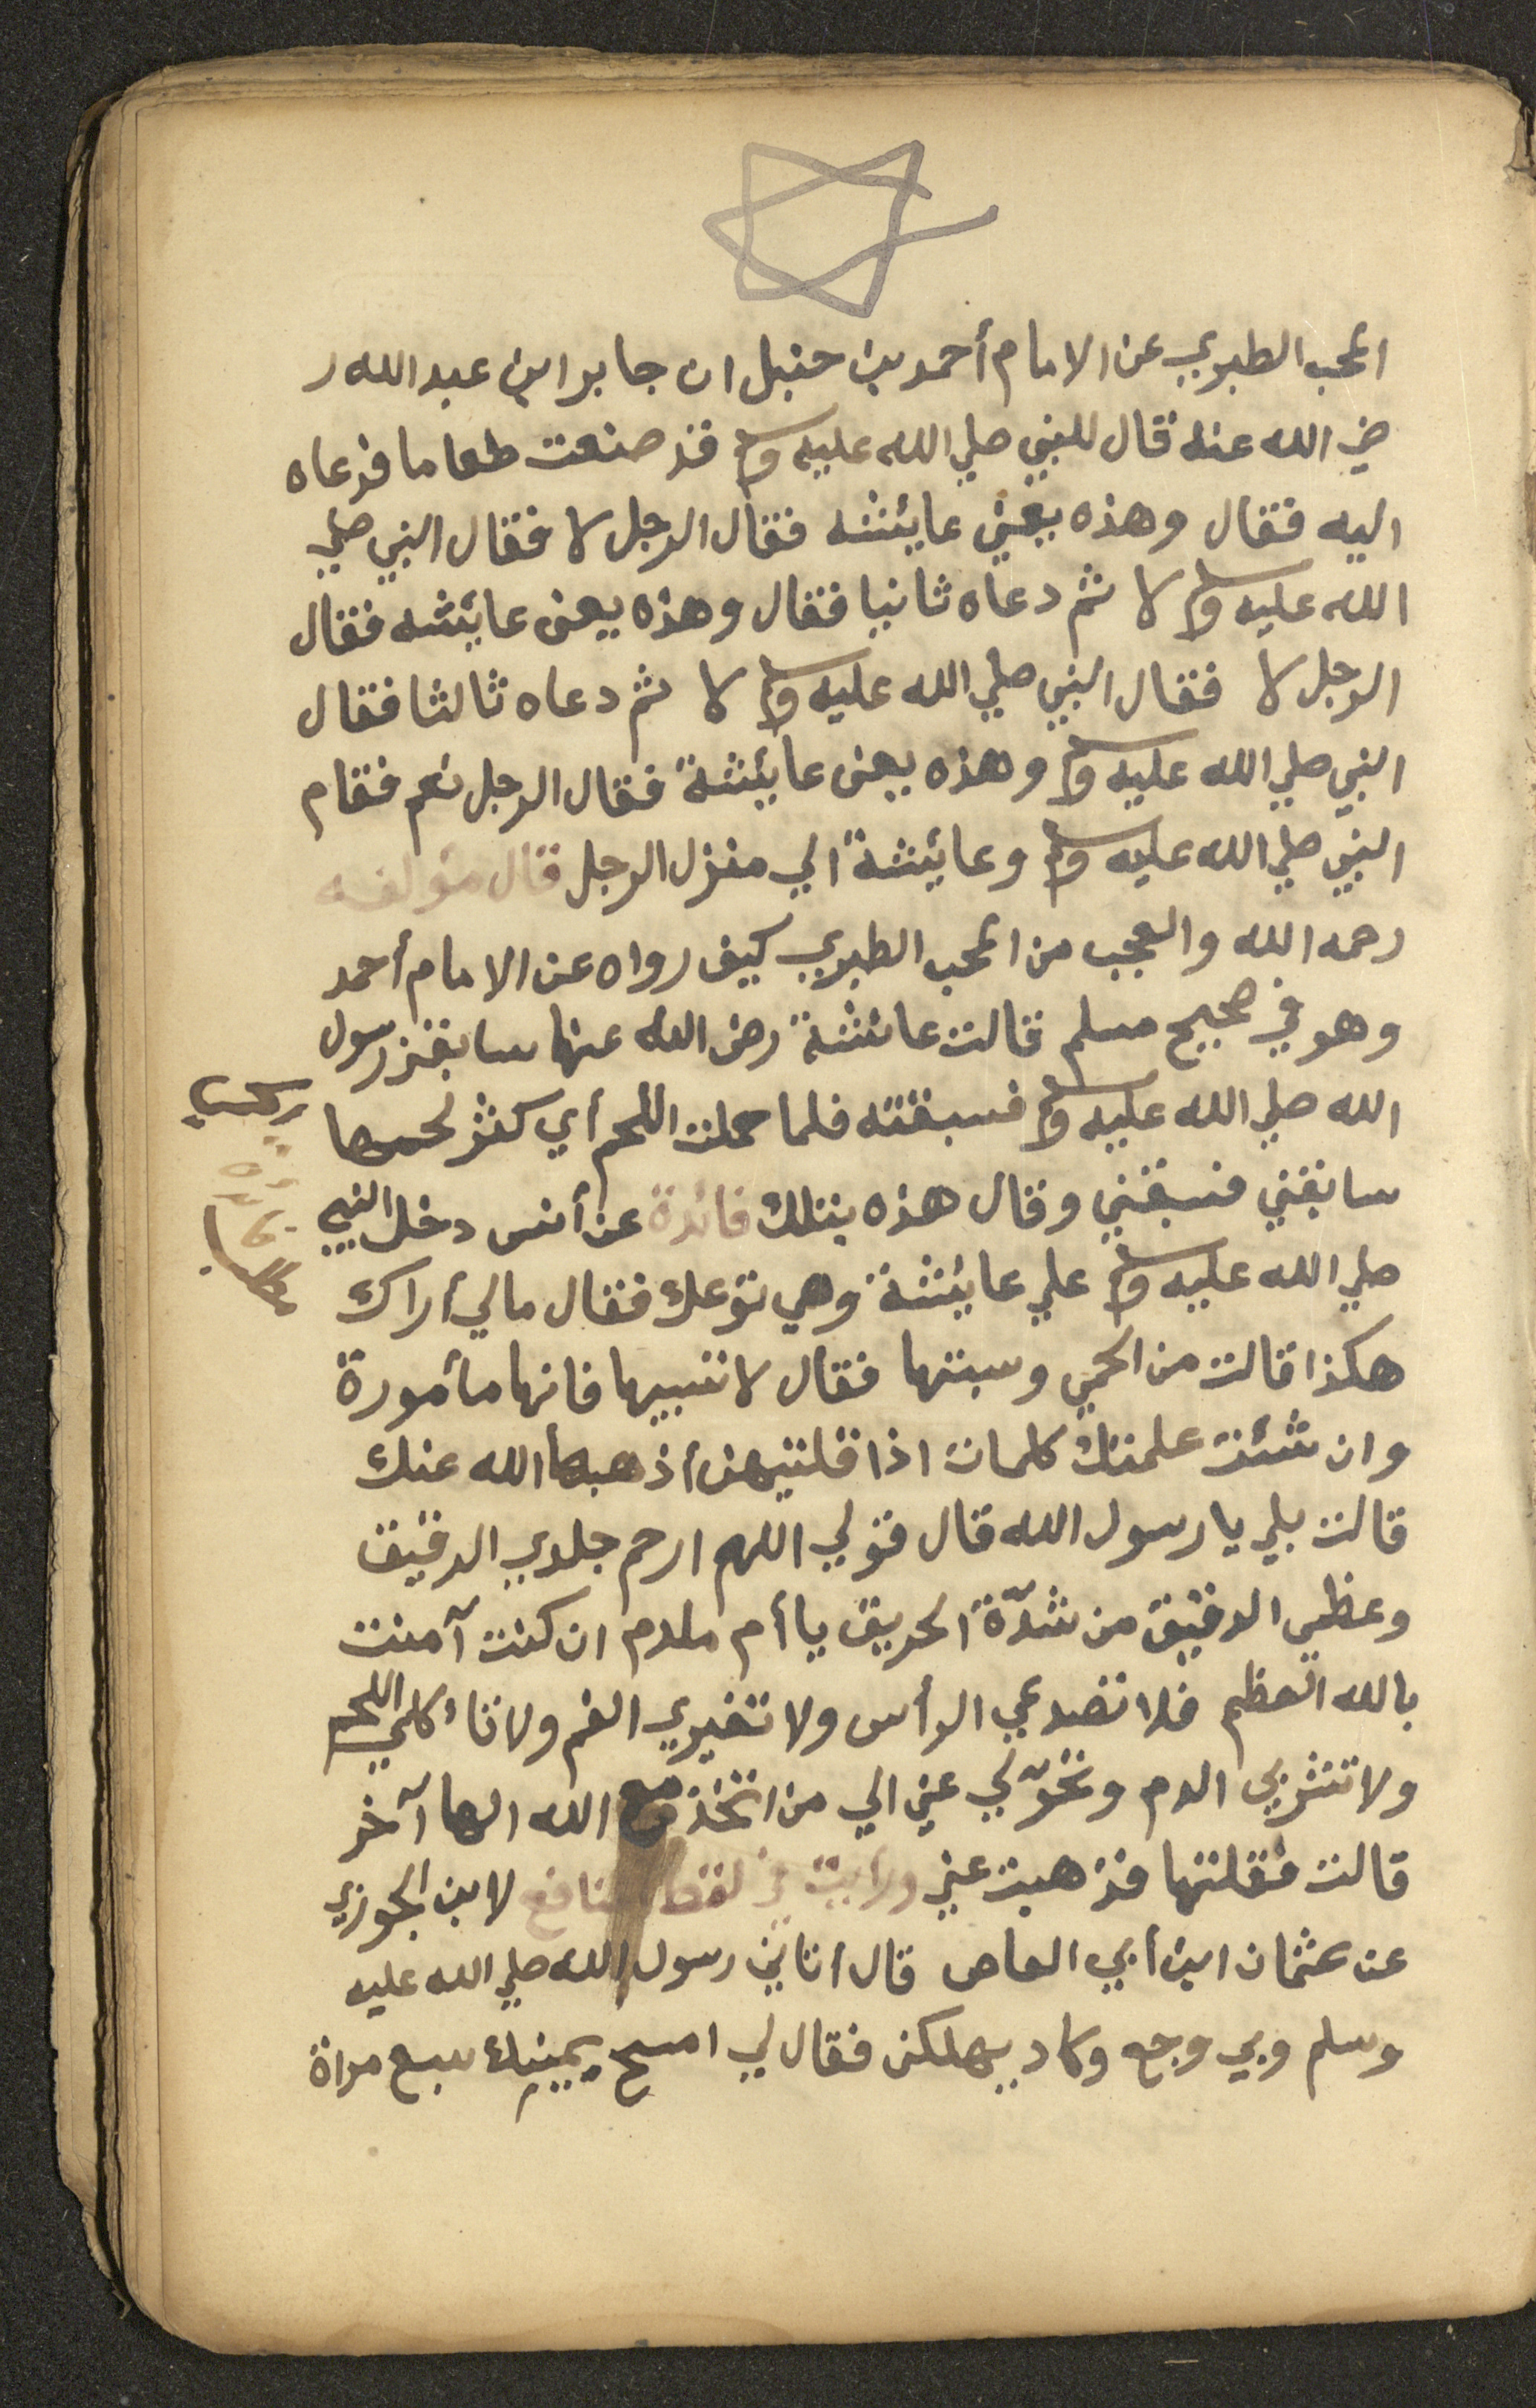 المحب الطبري عن الامام أحمد بن حنبل ان جابر ابن عبد الله ر
ضي الله عنه قال للنبي صلي الله عليه وسلم قد صنعت طعاما فدعاه
اليه فقال وهذه يعني عايئشه فقال الرجل لا فقال النبي صلي
الله عليه وسلم لا ثم دعاه ثانيا فقال وهذه يعنى عايئشه فقال
الرجل لا فقال النبي صلي الله عليه وسلم لا ثم دعاه ثالثا فقال
النبي صلي الله عليه وسلم وهذه يعنى عايئشة فقال الرجل نعم فقام
النبي صلي الله عليه وسلم وعايئشة الي منزل الرجل قال مؤلفه
رحمه الله والعجب من المحب الطبري كيف رواه عن الامام أحمد
وهو في صحيح مسلم قالت عائشة رضى الله عنها سابقني رسول
الله صلي الله عليه وسلم فسبقته فلما حملت اللحم أي كثر لحمها
سابقني فسبقني وقال هذه بتلك فائدة عن أنس دخل النبي
صلي الله عليه وسلم علي عايئشة وهي توعك فقال مالي أراك
هكذا قالت من الحمي وسبتها فقال لا تسبيها فانها مأمورة
وان شئت علمتك كلمات اذا قلتيهن أذهبها الله عنك
قالت بلي يا رسول الله قال قولي اللهم ارحم جلدي الرقيق
وعظمي الدقيق من شدّة الحريق يا أم ملدم ان كنت آمنت
بالله العظيم فلا تصدعي الرأس ولا تغيري الفم ولا تأكلي اللحم
ولا تشربي الدم وتحوّلي عني الي من اتخذ مع الله الها آخر
قالت فقلتها فذهبت عني ورأيت في لقط المنافع لابن الجوزي
عن عثمان ابن أبي العاص قال أتاني رسول الله صلي الله عليه
وسلم وبي وجع وكاد يهلكني فقال لي امسح بيمينك سبع مراة